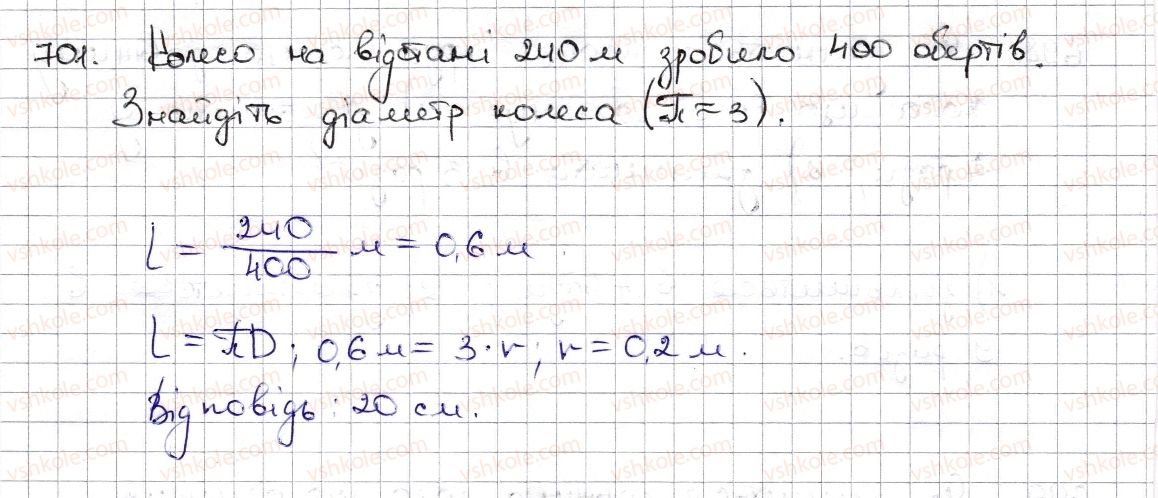 701. Колесо на відстані 240 м зробило 400 обертів.
Знайдіть діаметр колеса (π ≈ 3).
l = 240/400 м = 0,6 м.
l = πD; 0,6 м = 3·r; r = 0,2 м.
Відповідь: 20 см.